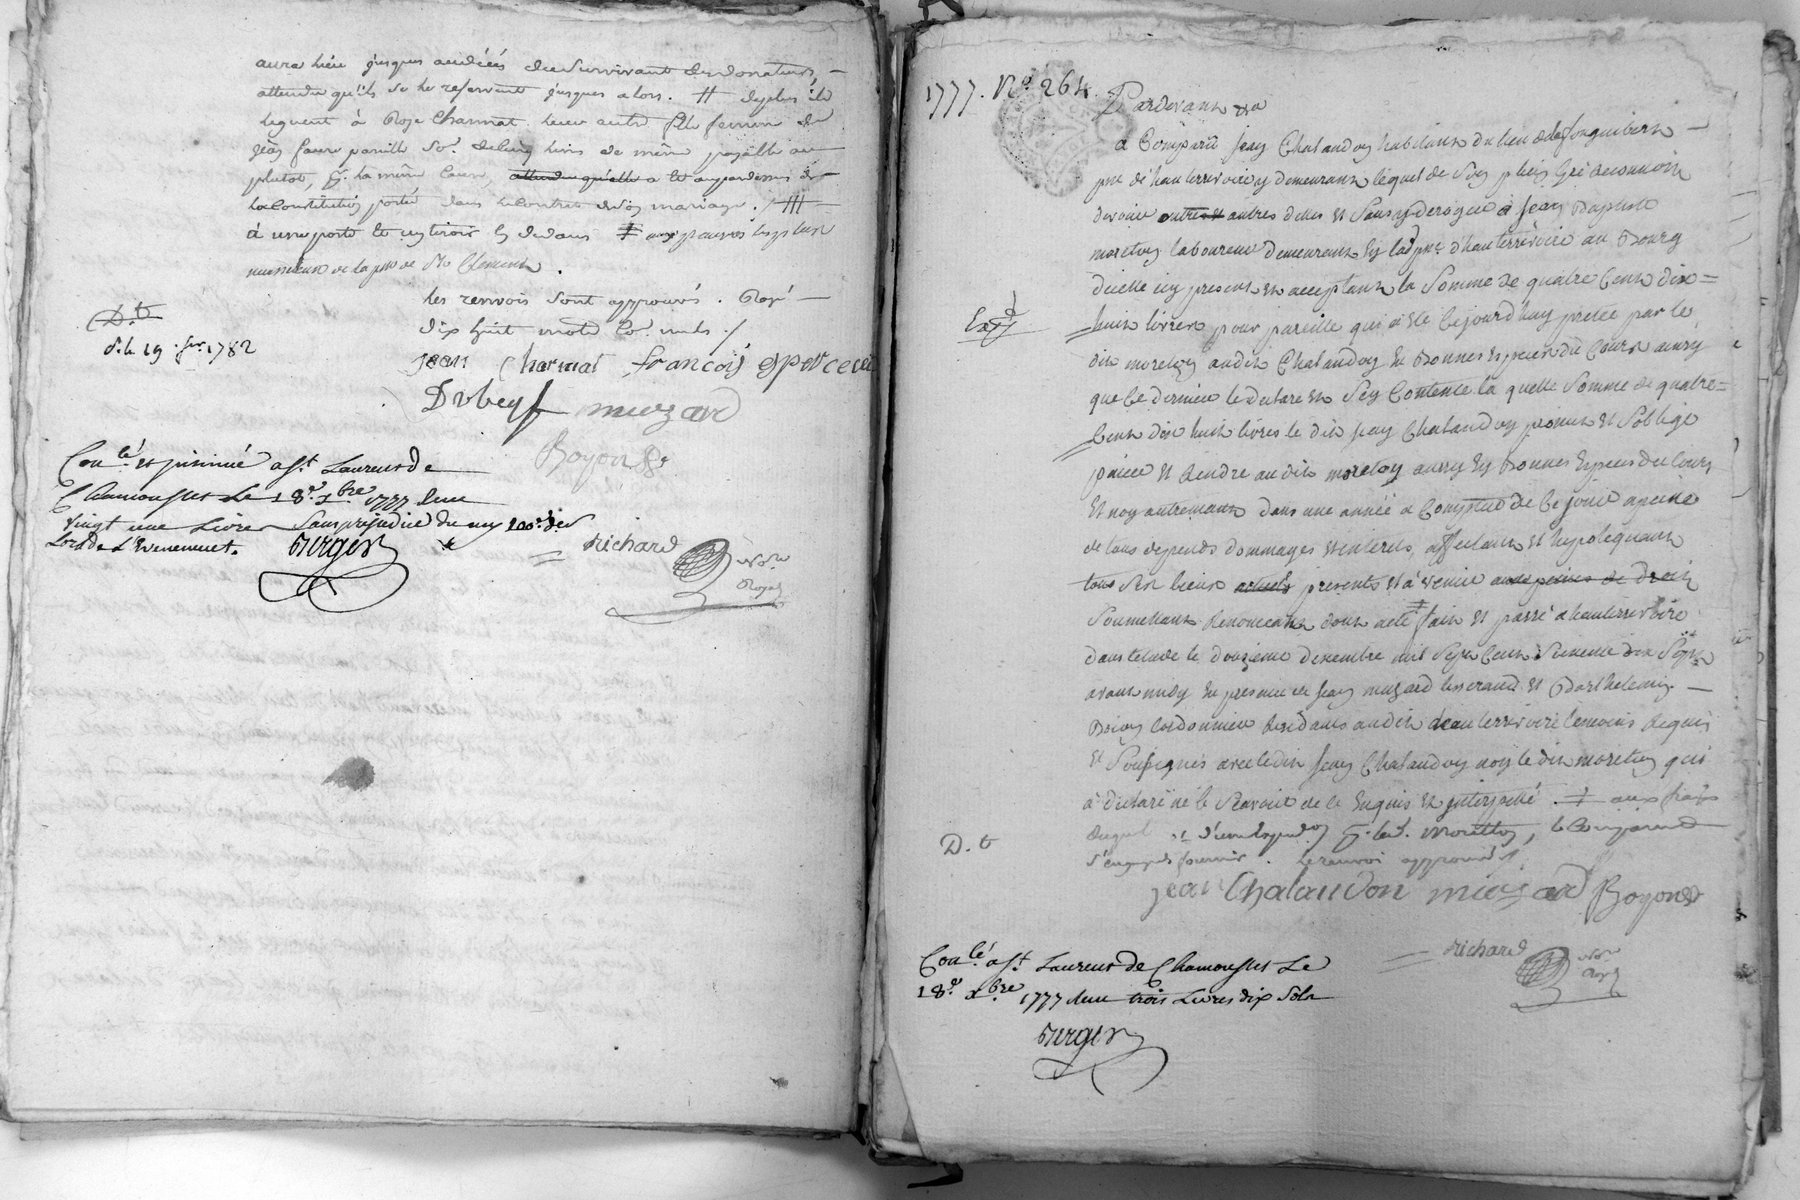 aura lieu jusques au décés du survivant des donateurs,
attendu qu'ils se les reservent jusques alors. # deplus ils
leguent à Roze Charmat leur autre fille femme de
jean faure
plutot, p. la même cause, attendu qu'elle a été
la constitution porté dans le contrat de son mariage. /
à une porte et un tiroir # aux pauvres les plus
de la p.sse de St Clement.
les renvois sont approuvés. Rayé
dix huit mots co. nuls. /
jean Charmat françois
Dubeuf muzard
Boyon
D.t
d. le 19. 1782
Con.lé et insinué a St Laurent de
Chamousset Le 18.e xbre 1777 Reçu
vingt une Livres Sans préjudice du
Lors de L'Evenement.
Richard
No.re
Royal
1777. No. 264.
Pardevant &a
a Comparû jean Chalandon habitant du lieu de
p.sse d'hauterrivoire y demeurant lequel de son plein gré reconnoit
devoir outre et autres dettes et sans y deroger à jean Baptiste
moreton laboureur demeurant en lad. p.sse d'hauterrivoire au Bourg
d'icelle icy present et acceptant la somme de quatre cent dix=
huit livres pour pareille qui a été cejourd'huy pretée par le
dit moreton audit Chalandon en Bonnes especes du Cours ainsy
que ce dernier le declare et s'en contente la quelle somme de quatre=
cent dix huit livres le dit jean Chalandon promet et s'oblige
païer et rendre au dit moreton aussy en Bonnes especes du Cours
et non autrement dans une année a compter de ce jour a peine
de tous depends dommages et interets, affectant et hypotequant
tous ses biens presents et à venir aux peines de droit
soumettant Renonceant dont acte # fait et passé a hauterrivoire
dans letude le douzieme decembre mil sept cent soixente dix sept
avant midy en presence de jean muzard tisserand et Barthelemy
Boyon Cordonnier Residants audit hauterrivoire temoins Requis
et soussignés avec ledit jean Chalandon non le dit moreton qui
à declaré ne le scavoir de ce enquis et interpellé. # aux frais
duquel p. led. Moretton, le comparant
s'engage fournir. le renvoi approuvé /
jean Chalandon muzard Boyon
D. t
Con.lé a St Laurent de Chamousset Le
18.e xbre 1777 Reçu trois Livres dix Sols
Richard
No.re
Royal